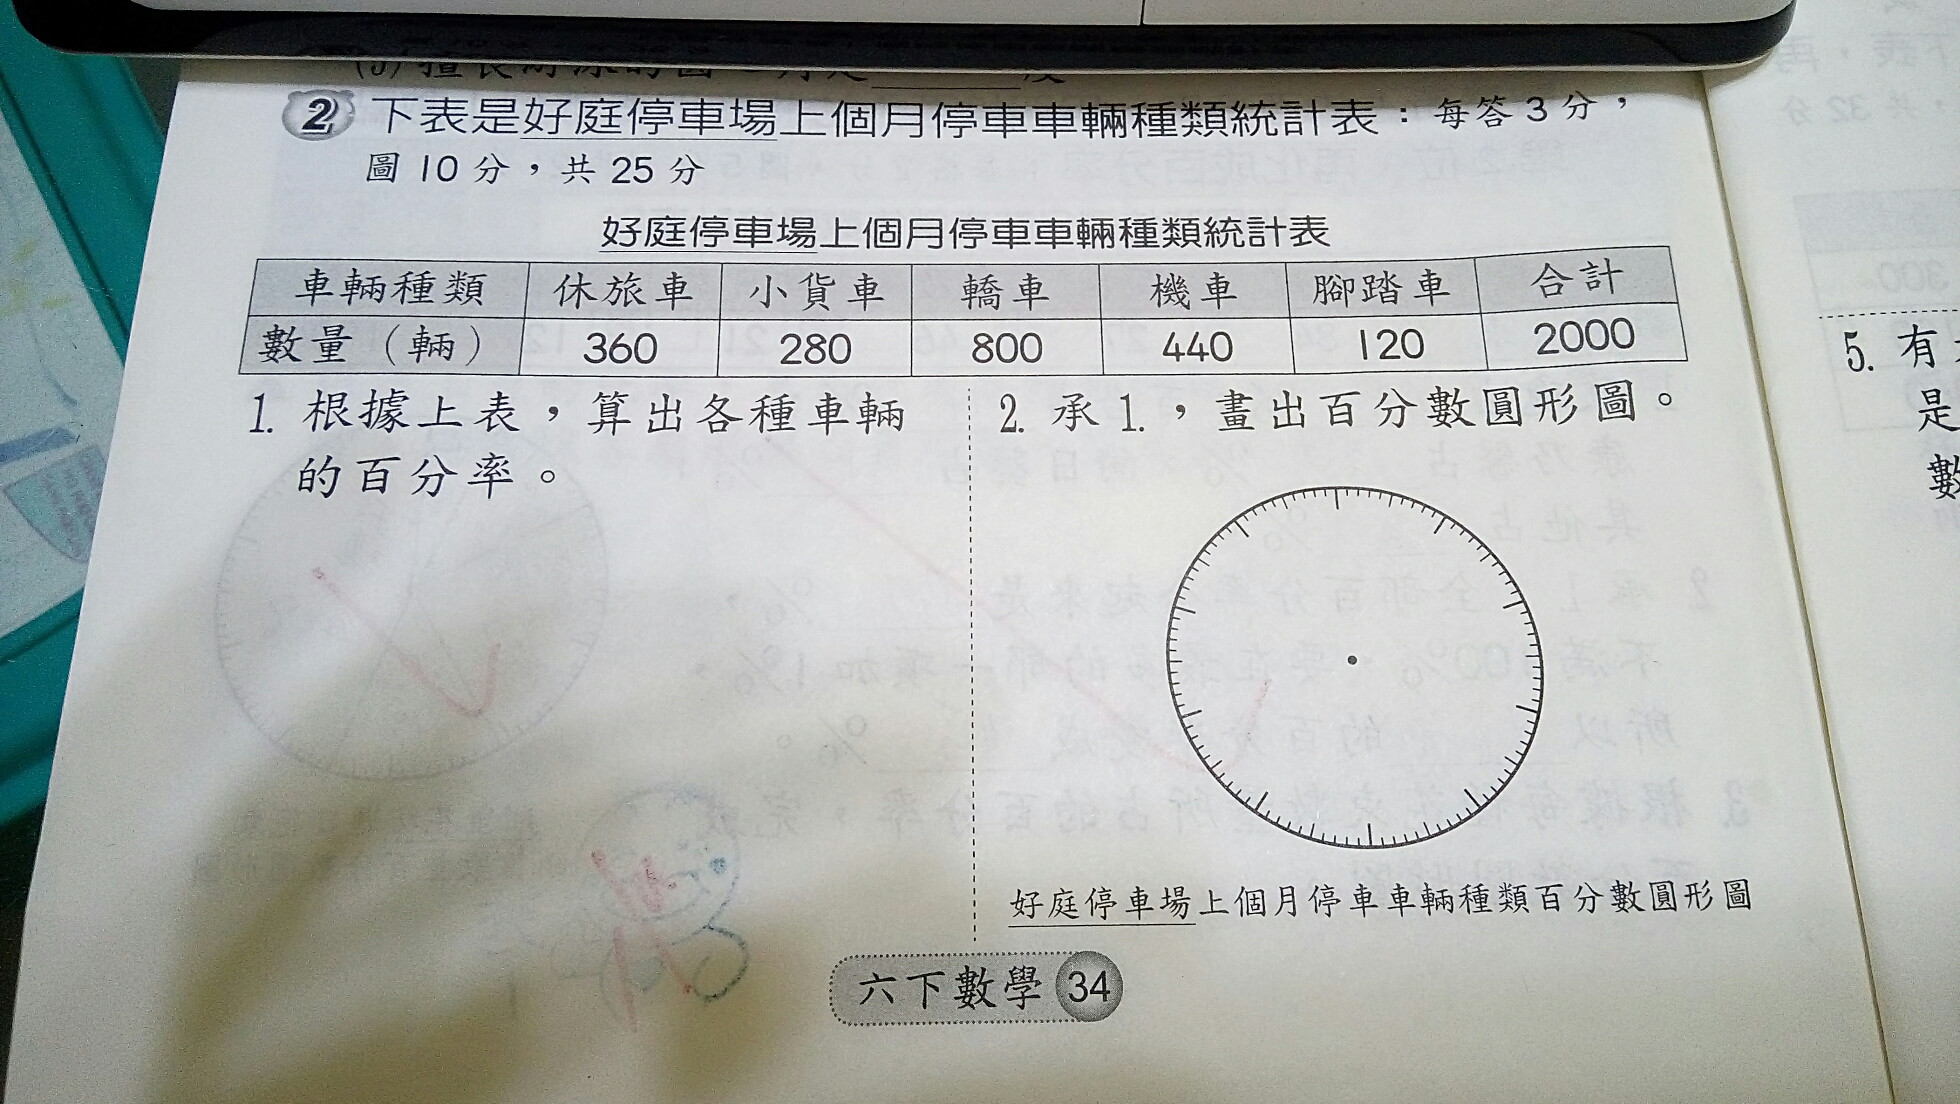 2 下表是好庭停車場上個月停車車輛種類統計表：每答3分，
圖10分，共25分
好庭停車場上個月停車車輛種類統計表
車輛種類 休旅車 小貨車 轎車 機車 腳踏車 合計
數量（輛） 360 280 800 440 120 2000
1. 根據上表，算出各種車輛
的百分率。
2. 承1.，畫出百分數圓形圖。
好庭停車場上個月停車車輛種類百分數圓形圖
六下數學 34
5. 有
是
數